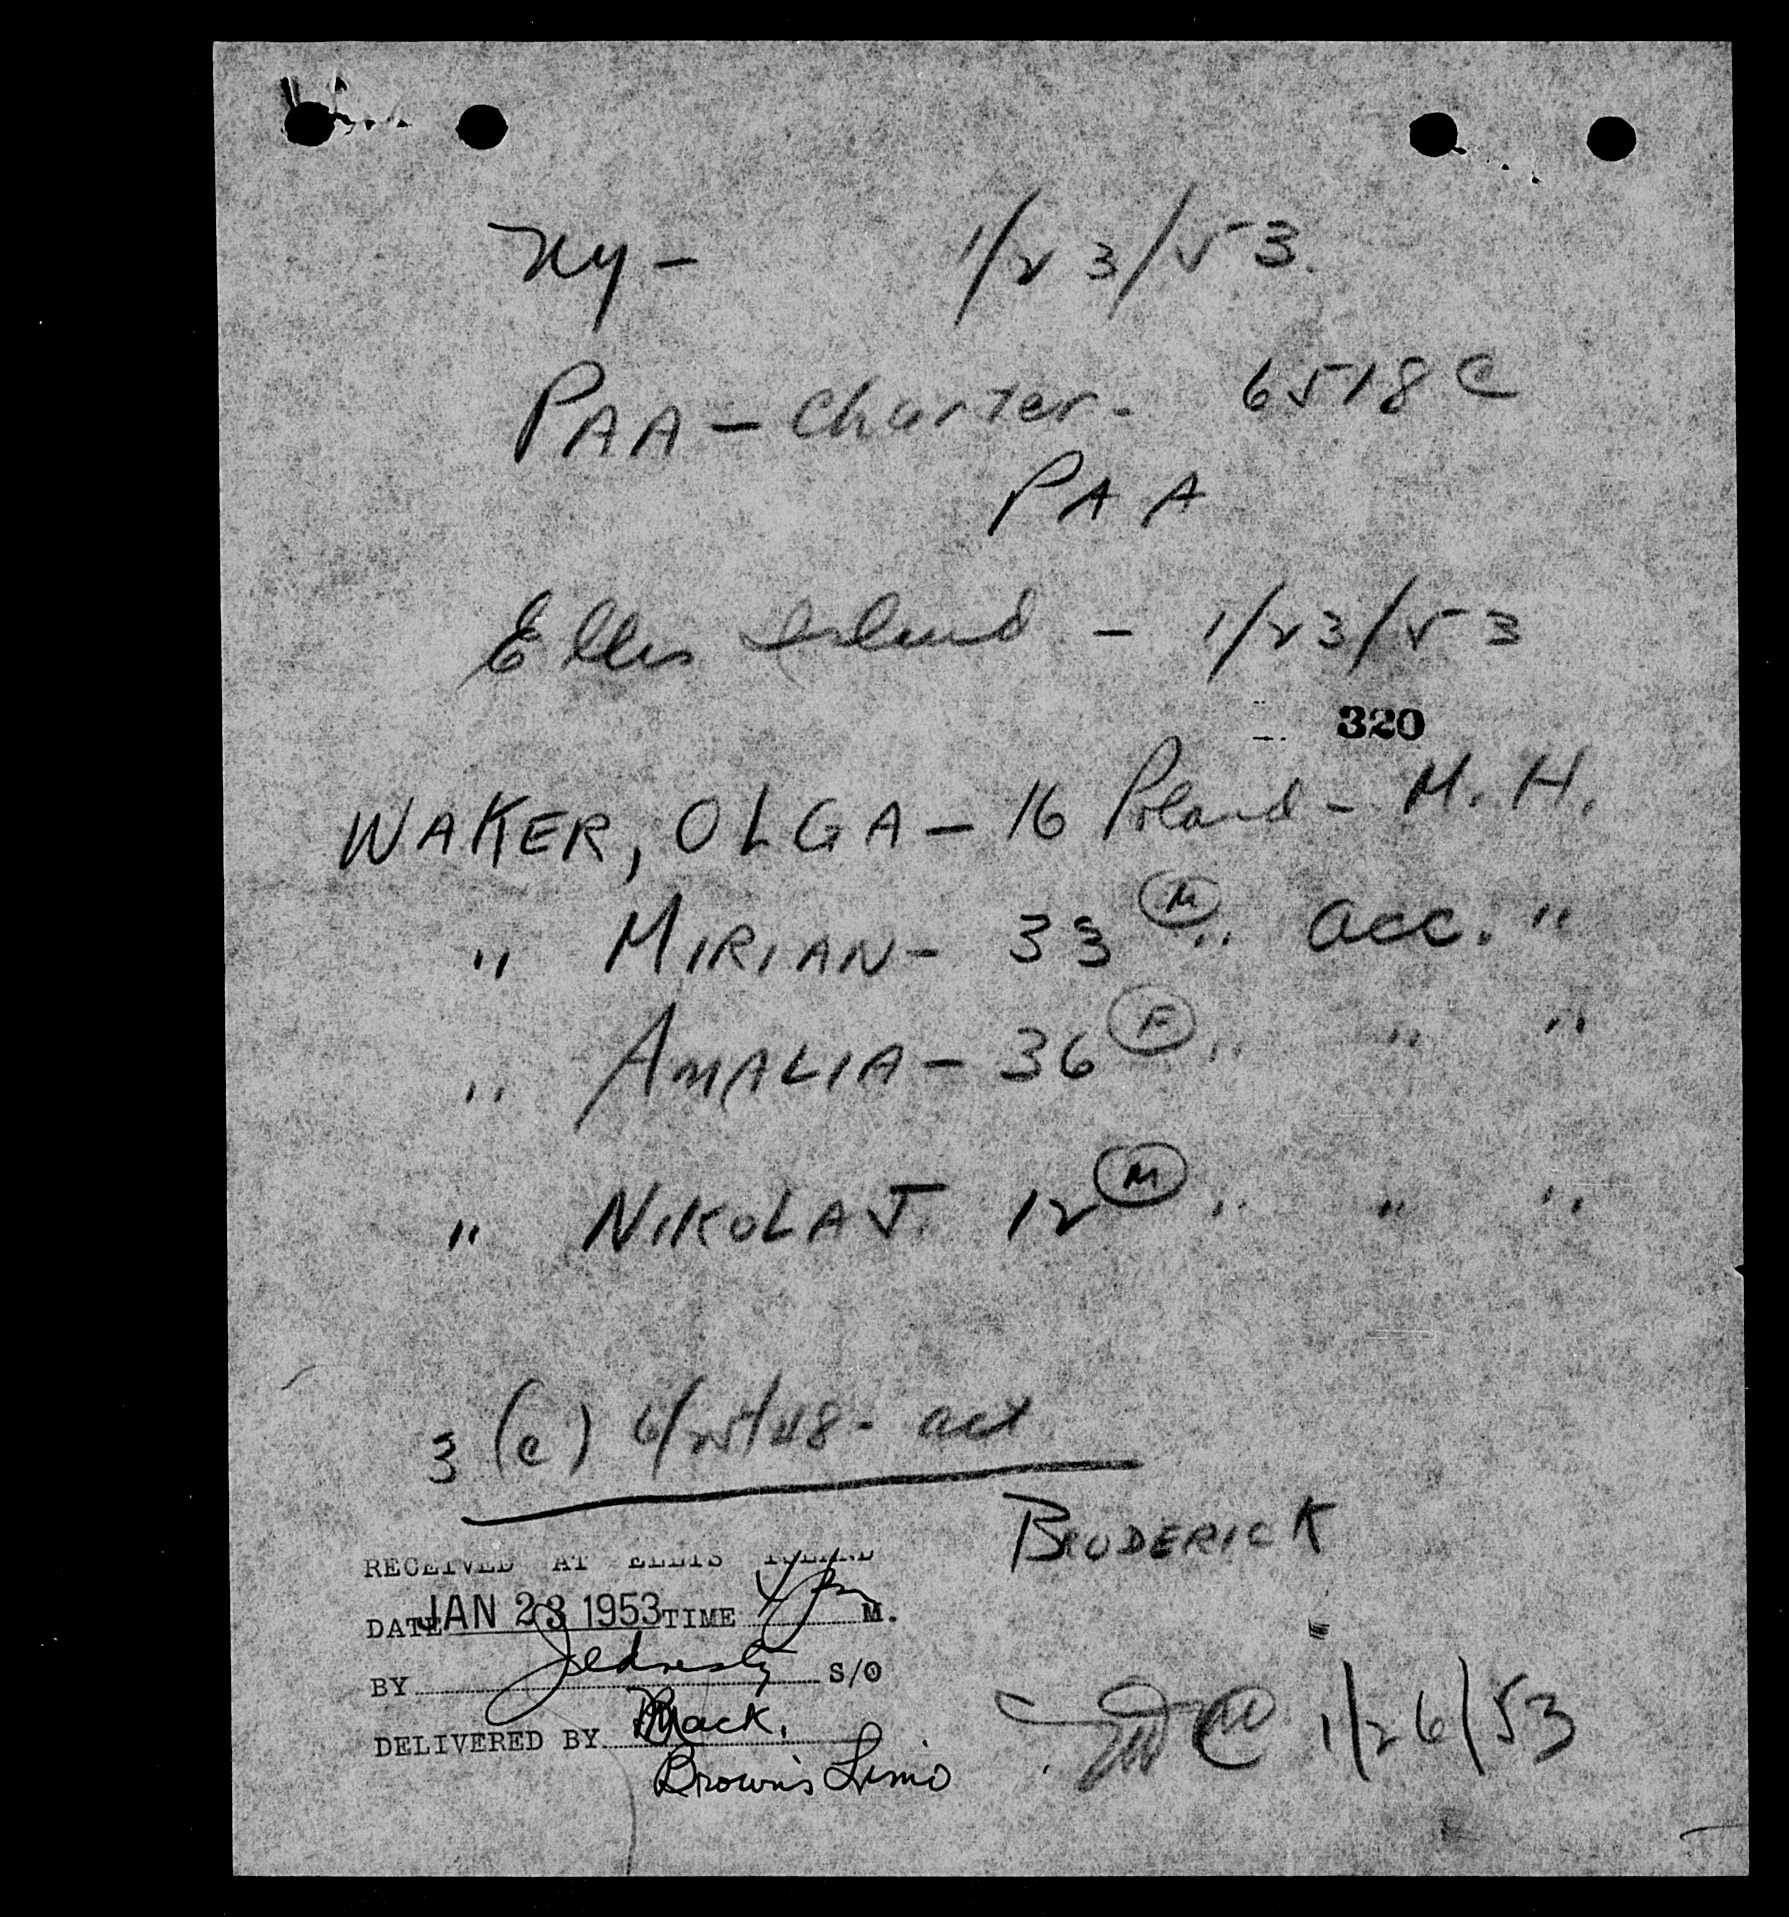 NY - 1/23/53.
PAA - Charter - 6518 C
PAA
Ellis Island - 1/23/53
320
WAKER, OLGA - 16 Poland - M. H.
" MIRIAN - 33 (M) " acc. "
" AMALIA - 36 (F) " " "
" NIKOLAJ. 12 (M) " " "
3 (c) 6/25/48 - act
BRODERICK
RECEIVED AT ELLIS ISLAND
DATE JAN 23 1953 TIME 4 P M.
BY S/O
DELIVERED BY Mack.
Brown's Limo
1/26/53